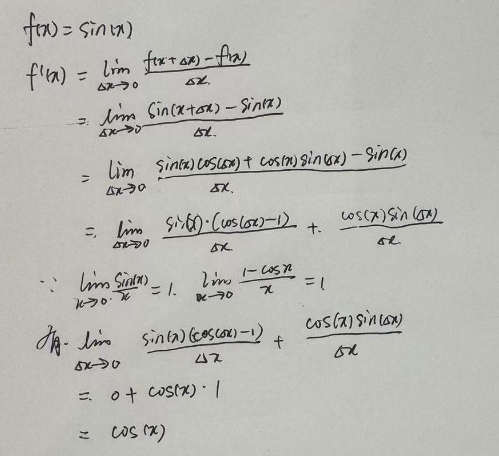 f(x) = sin(x)
f'(x) = lim_{Δx→0} \frac{f(x+Δx) - f(x)}{Δx}
= lim_{Δx→0} \frac{sin(x+Δx) - sin(x)}{Δx}
= lim_{Δx→0} \frac{sin(x)cos(Δx) + cos(x)sin(Δx) - sin(x)}{Δx}
= lim_{Δx→0} \frac{sin(x)·(cos(Δx)-1)}{Δx} + \frac{cos(x)sin(Δx)}{Δx}
∵ lim_{x→0} \frac{sin(x)}{x} = 1. lim_{x→0} \frac{1-cosx}{x} = 1
lim_{Δx→0} \frac{sin(x)(cos(Δx)-1)}{Δx} + \frac{cos(x)sin(Δx)}{Δx}
= 0 + cos(x)·1
= cos(x)